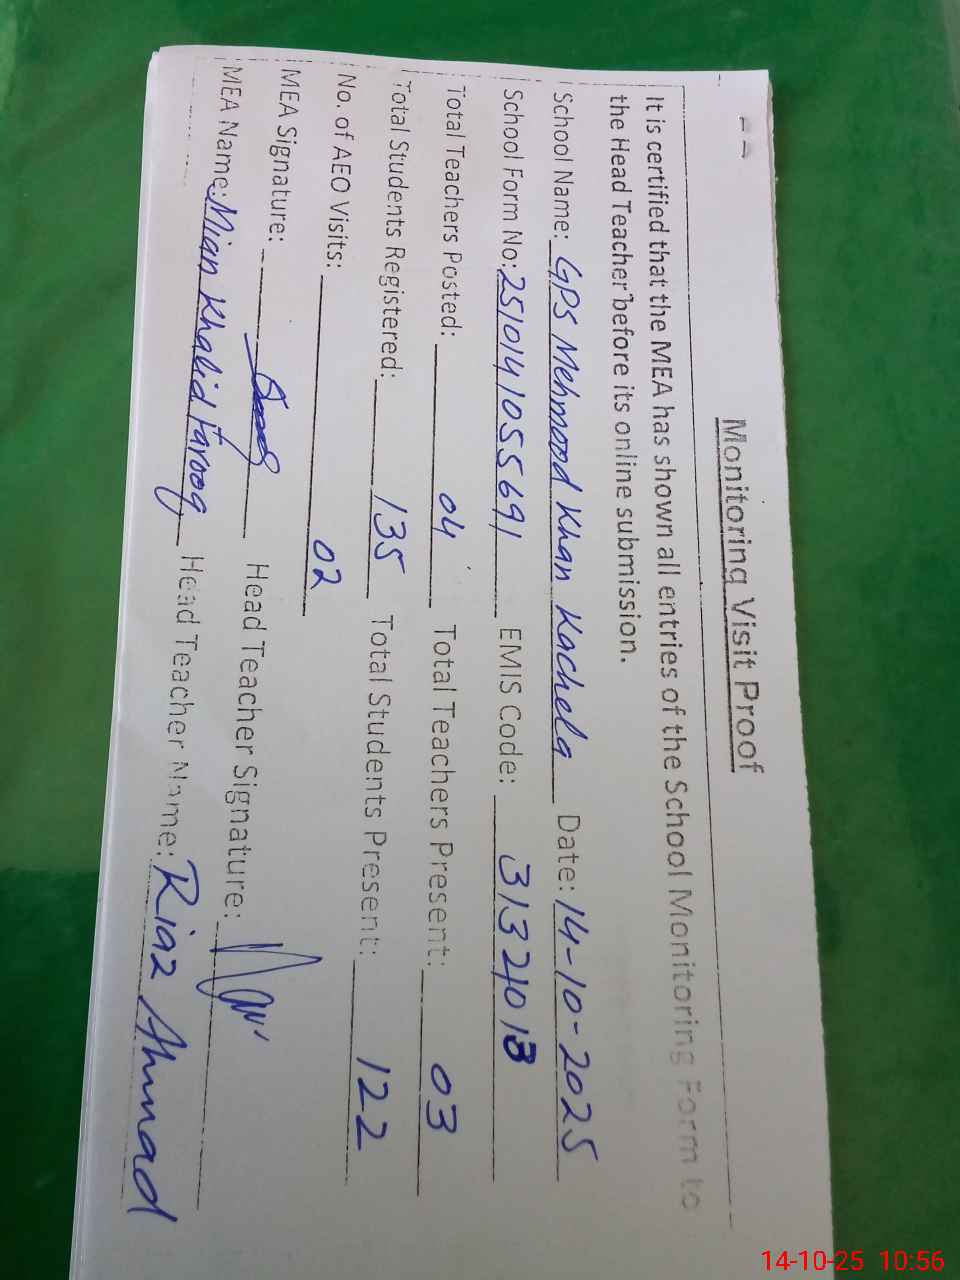 Monitoring Visit Proof
It is certified that the MEA has shown all entries of the School Monitoring Form to
the Head Teacher before its online submission.
School Name: GPS Mehmood Khan Kachela Date: 14-10-2025
School Form No: 2510141055691 EMIS Code: 31321013
Total Teachers Posted: 04 Total Teachers Present: 03
Total Students Registered: 135 Total Students Present: 122
No. of AEO Visits: 02
MEA Signature: Head Teacher Signature:
MEA Name: Mian Khalid Farooq Head Teacher Name: Riaz Ahmad
14-10-25 10:56